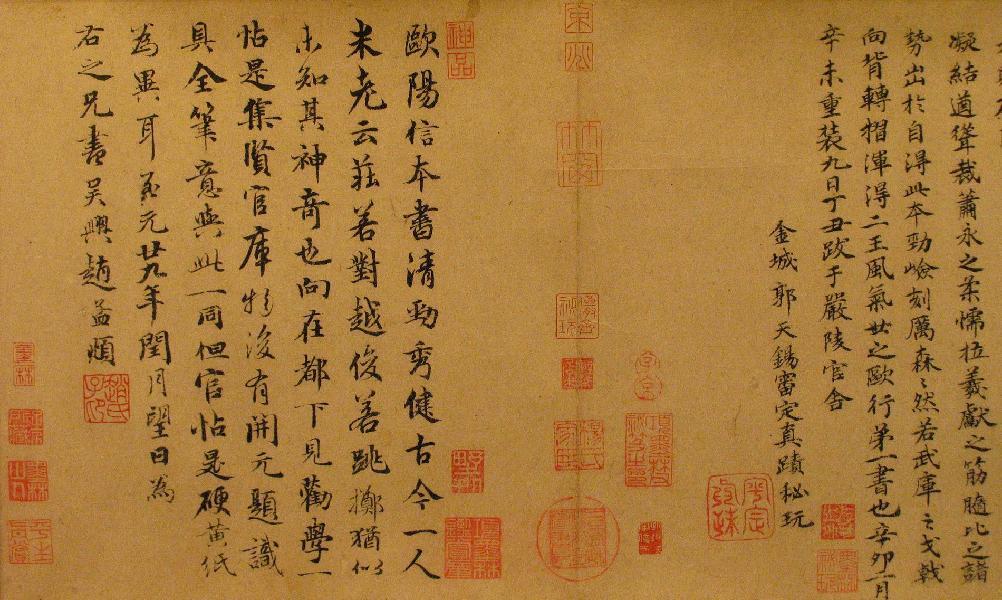 凝結遒聳裁蕭永之柔懦拉羲獻之筋髓比之諸
勢出於自得此本勁嶮刻厲森〻然若武庫之戈戟
向背轉摺渾得二王風氣世之歐行第一書也辛卯一月
辛未重裝九日丁丑跋于嚴陵官舍
金城郭天錫審定真蹟秘玩
神品
歐陽信本書清勁秀健古今一人
米老云莊若對越俊若跳擲猶似
未知其神奇也向在都下見勸學一
帖是集賢官庫物後有開元題識
具全筆意與此一同但官帖是硬黃紙
為異耳至元廿九年閏月望日為
右之兄書吳興趙孟頫
趙氏子昂